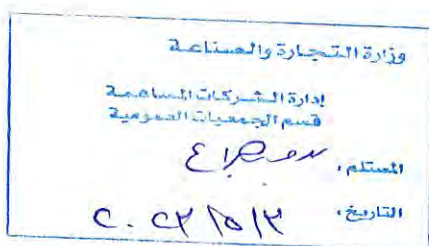 وزارة التجارة والصناعة
إدارة الشركات المساهمة
قسم الجمعيات العمومية
المستلم :
التاريخ : ٢٠٢٣/٥/٣